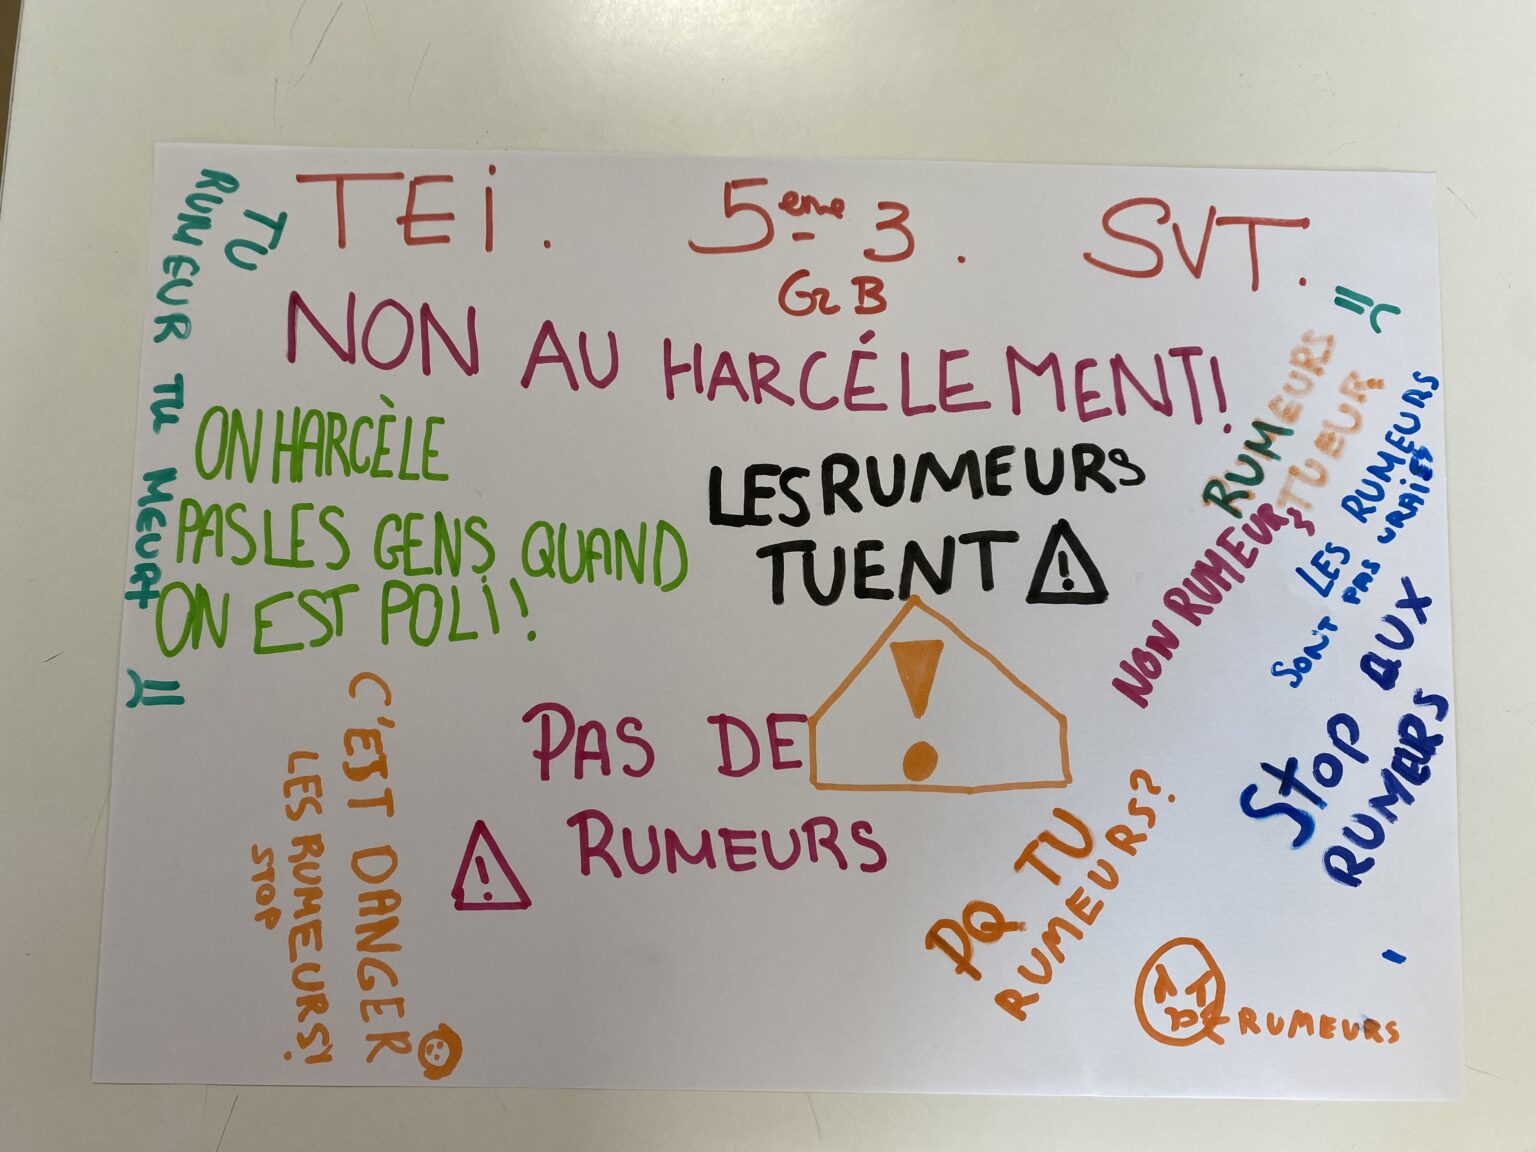 TEi. 5ème 3. SVT.
Gr B
TU
RUMEUR TU MEURT
NON AU HARCÉLEMENT!
ON HARCÈLE
PAS LES GENS QUAND
ON EST POLI!
LES RUMEURS
TUENT
!
RUMEURS
TUEUR
NON RUMEURS
LES RUMEURS
SONT PAS VRAIES
STOP AUX
RUMEURS
PAS DE
!
RUMEURS
!
C'EST DANGER
LES RUMEURS!
STOP
PQ TU
RUMEURS?
RUMEURS